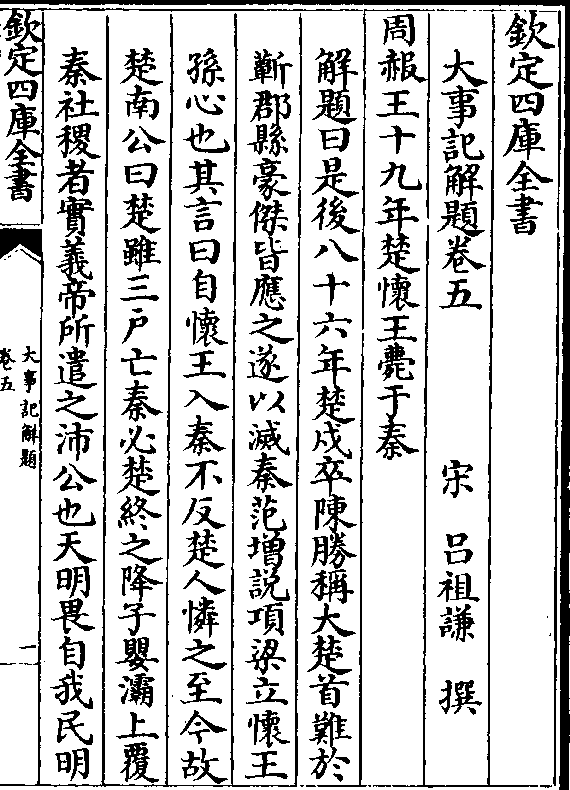 欽定四庫全書
大事記解題卷五
宋 呂祖謙 撰
周赧王十九年楚懷王薨于秦
解題曰是後八十六年楚戍卒陳勝稱大楚首難於
蘄郡縣豪傑皆應之遂以滅秦范增説項梁立懷王
孫心也其言曰自懷王入秦不反楚人憐之至今故
楚南公曰楚雖三戸亡秦必楚終之降子嬰灞上覆
秦社稷者實義帝所遣之沛公也天明畏自我民明
欽定四庫全書
大事記解題
卷五
一